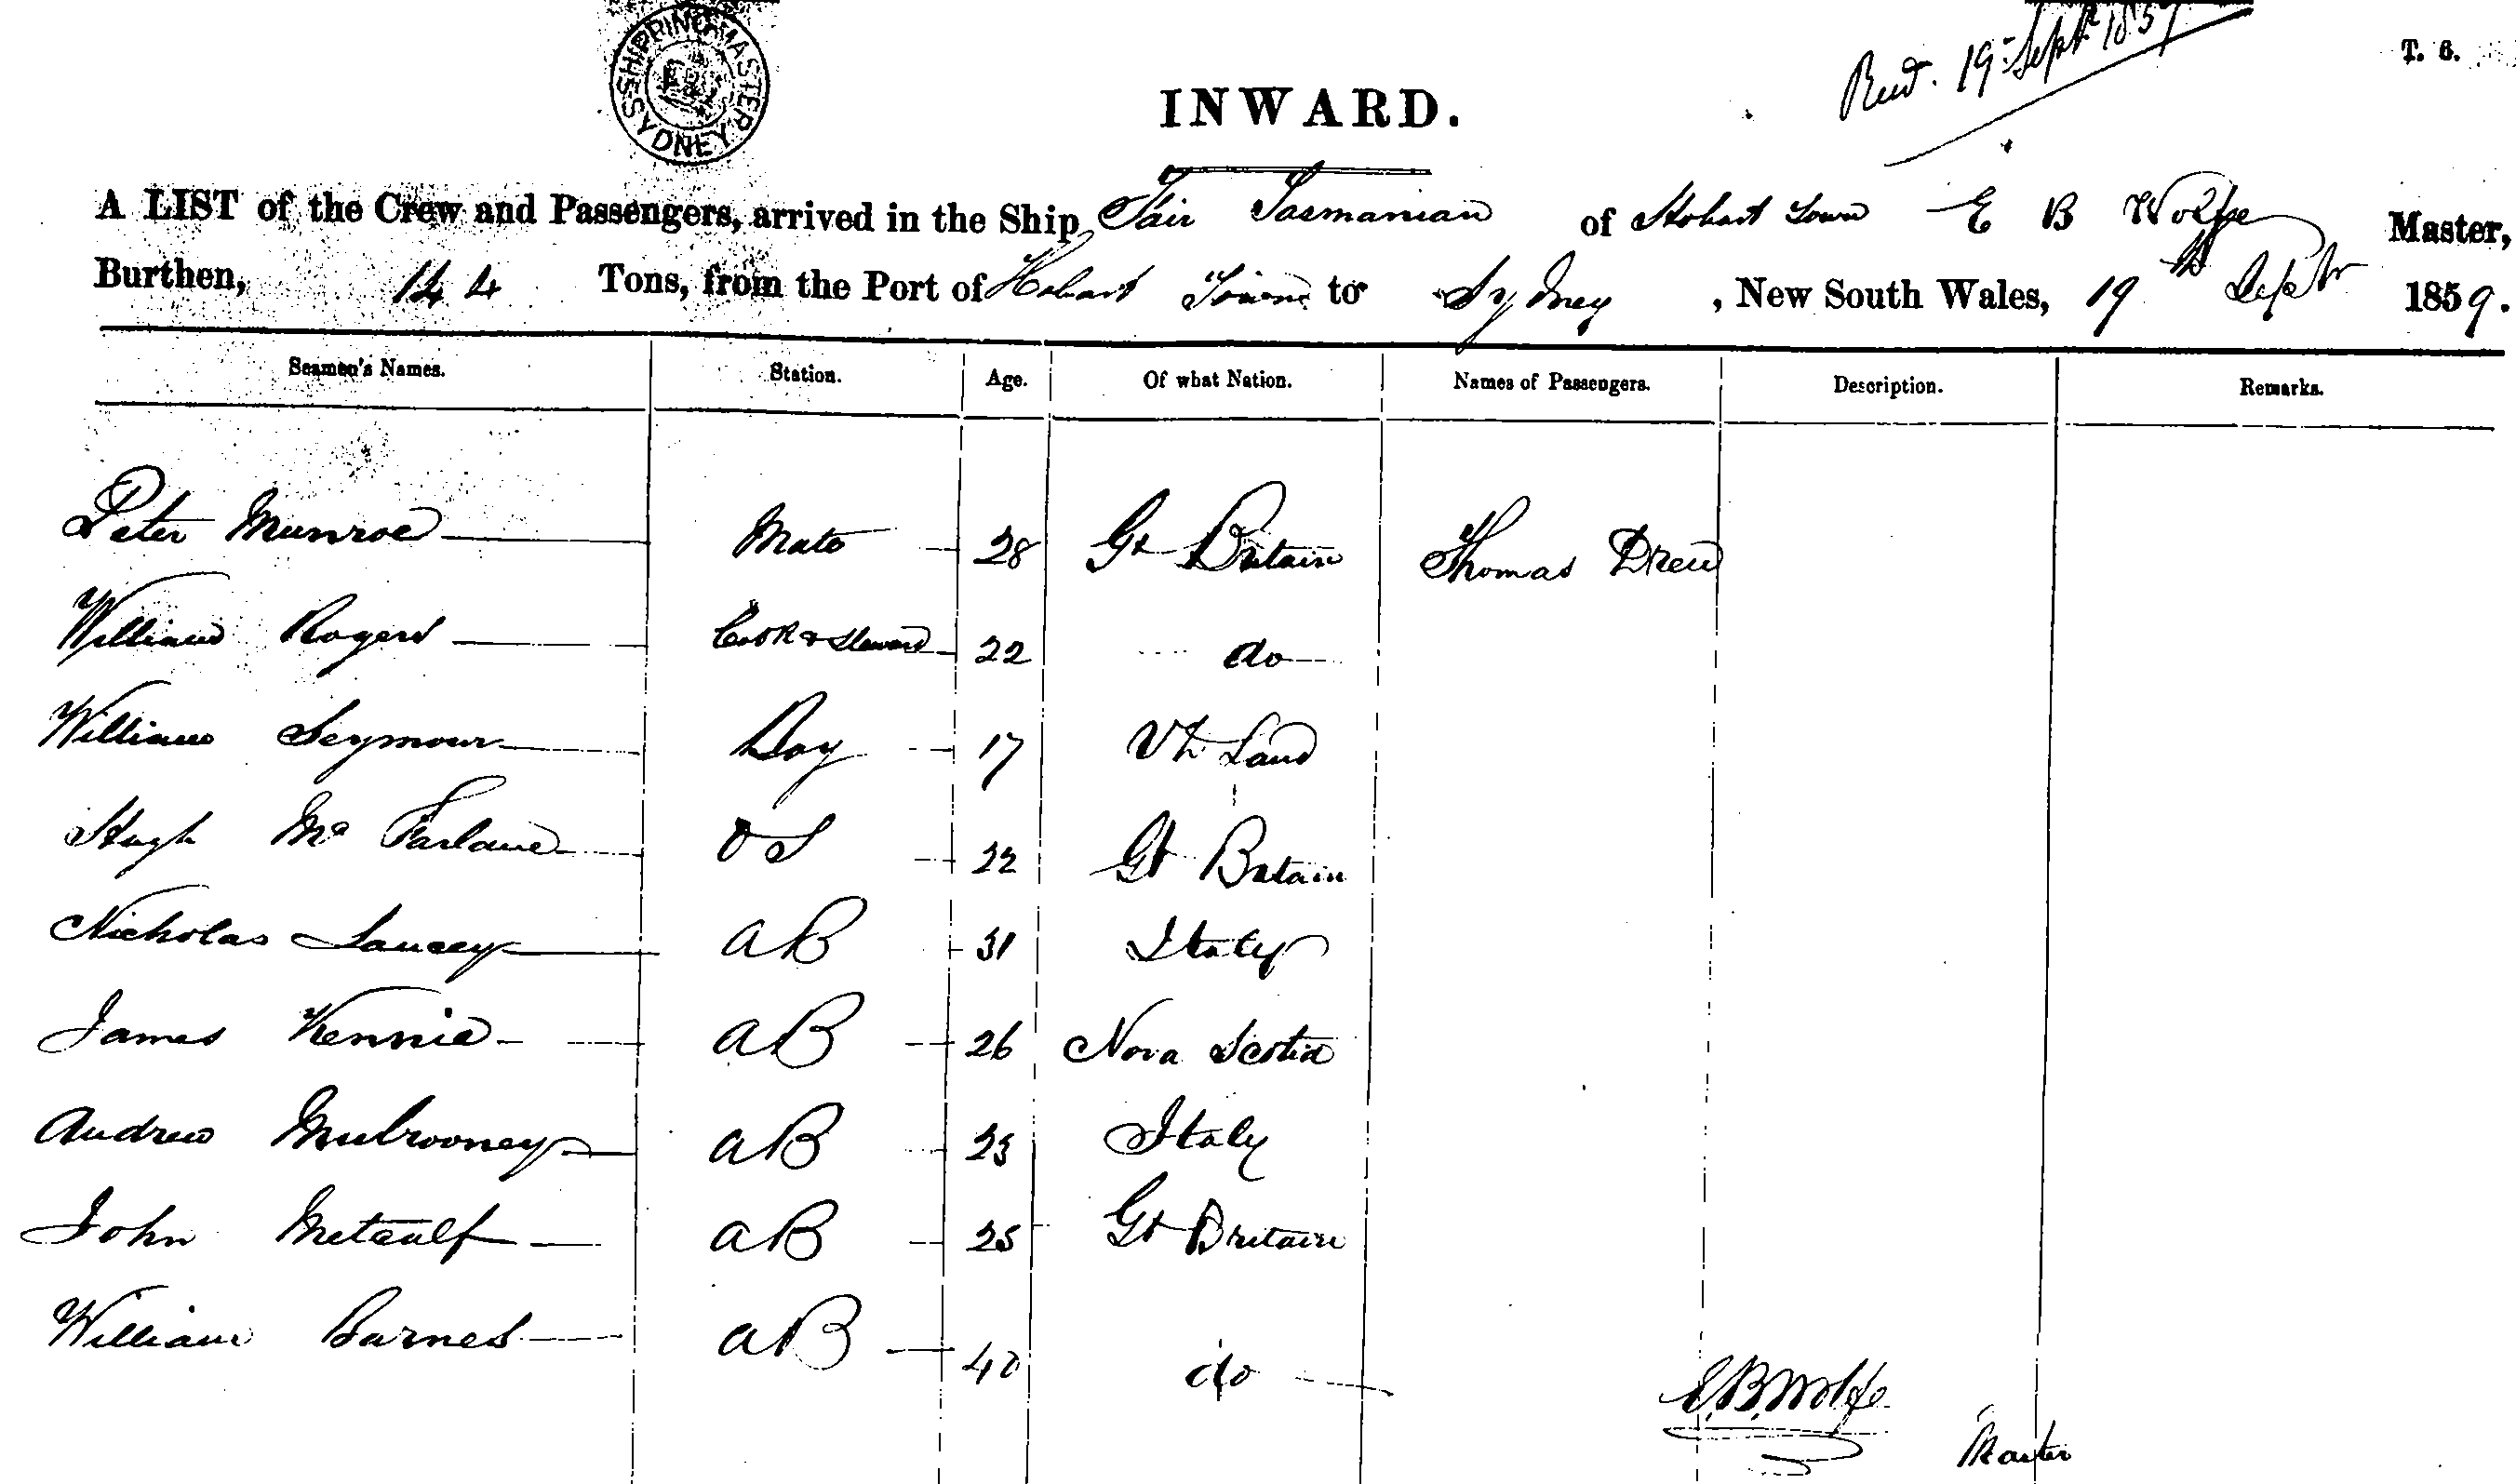 SHIPPING MASTER SYDNEY
Recd. 19 Sept 1859
T. 6.
INWARD.
A LIST of the Crew and Passengers, arrived in the Ship Fair Tasmanian of Hobart Town E B Wolfe Master,
Burthen, 144 Tons, from the Port of Hobart Town to Sydney, New South Wales, 19th Septr 1859.
Seamen's Names. Station. Age. Of what Nation. Names of Passengers. Description. Remarks.
Peter Munroe Mate 28 Gt Britain Thomas Drew
William Rogers Cook & Steward 22 do
William Seymour Boy 17 Land
Hugh Mc Farlane O S 22 Gt Britain
Nicholas AB 31 Italy
James Kennie AB 26 Nova Scotia
Andrew Mulrooney AB 23 Italy
John Metcalf AB 25 Gt Britain
William Barnes AB 40 do
E.B. Wolfe
Master